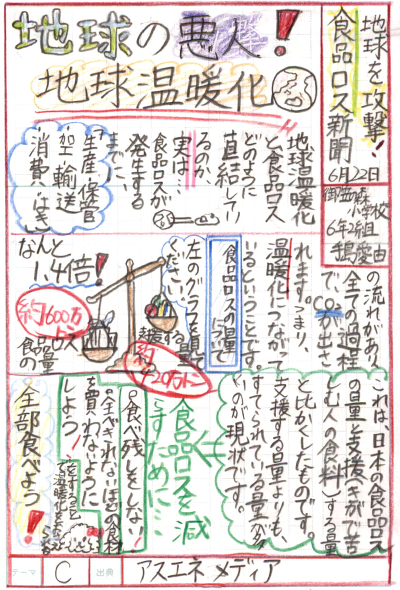 地球の悪人!
地球温暖化
地球を攻撃!
食品ロス新聞
6月22日
小学校
6年2組
地球温暖化
と食品ロス
どのように
直結してい
るのか
実は…
食品ロスが
発生する
までに、
生産、保管
加工、輸送
消費、はいき
の流れがあり、
全ての過程
で、CO₂が出さ
れます。つまり、
温暖化につながって
いるということです。
食品ロスの量
について
左のグラフを見て
ください。
なんと
1.4倍!
約600万
トン
食品ロス
の量
支援する
量
約
420万トン
これは、日本の食品ロス
の量と支援(きがで苦
しむ人の食料)する量
と比かくしたものです。
支援する量よりも、
すてられている量が多
いのが現状です。
食品ロスを減
らすために…
◎食べ残しをしない!
◎全べきれないほどの食材
を買わないように
しよう!
全部食べよう!
テーマ
C
出典
アスエネメディア